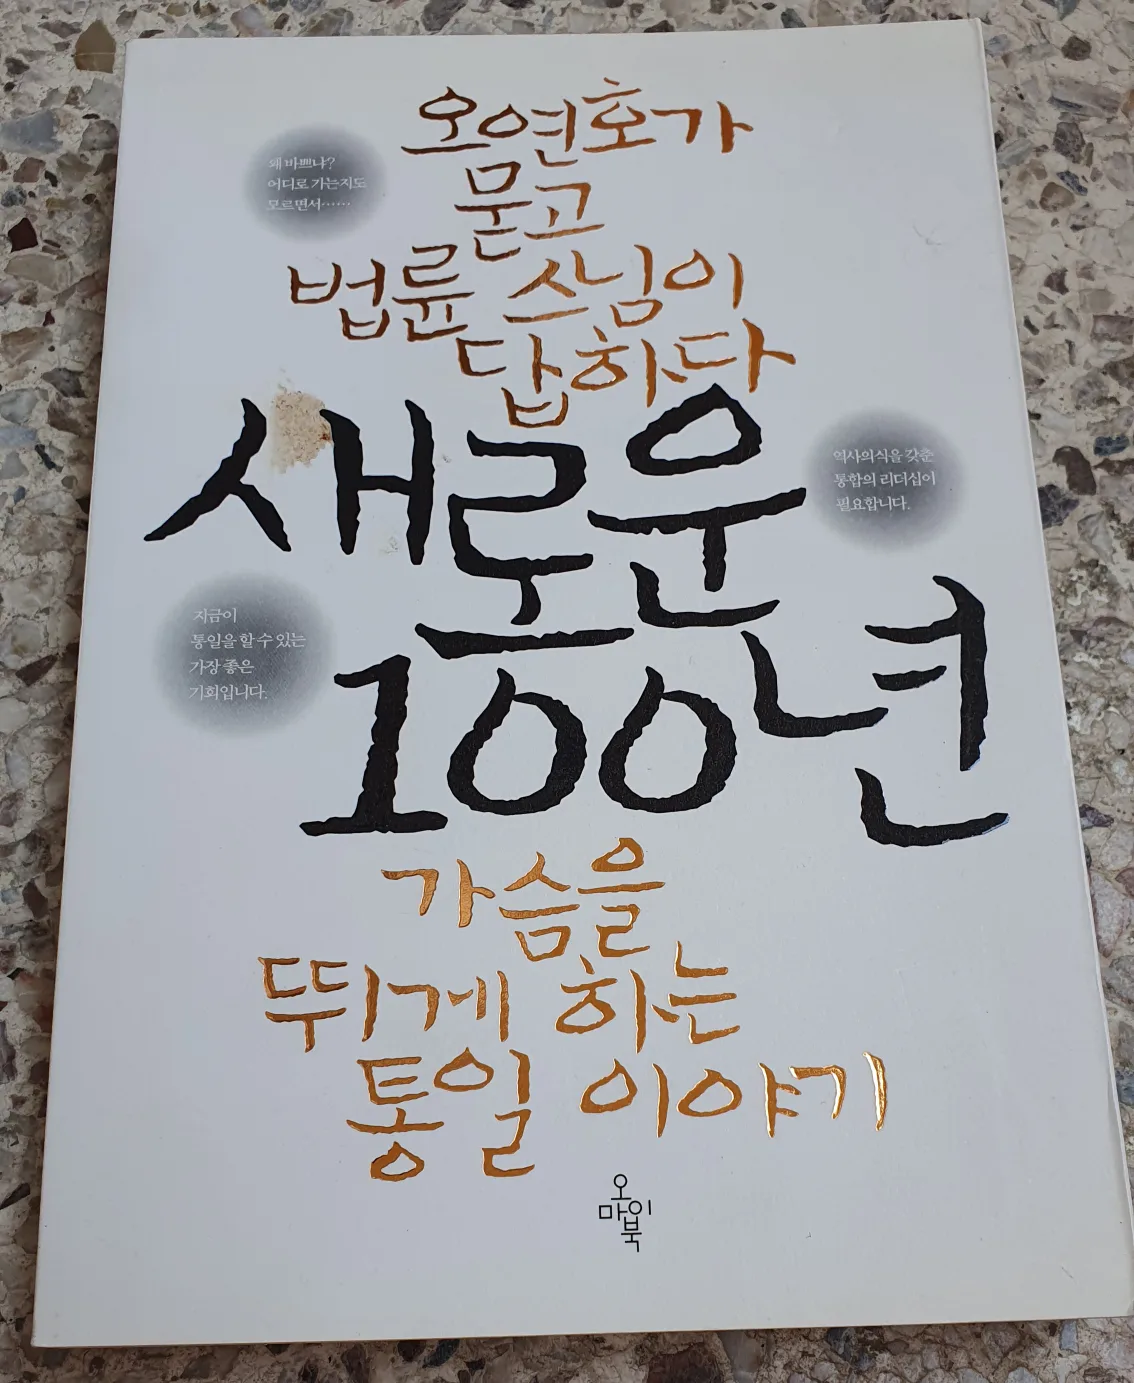 오연호가
묻고
법륜 스님이
답하다
왜 바쁘냐?
어디로 가는지도
모르면서……
새로운
100년
역사의식을 갖춘
통합의 리더십이
필요합니다.
지금이
통일을 할 수 있는
가장 좋은
기회입니다.
가슴을
뛰게 하는
통일 이야기
오
마이
북